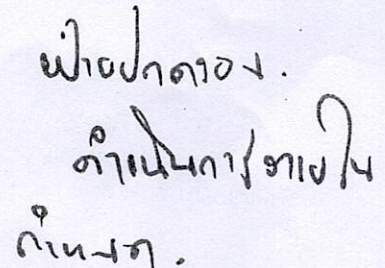 ฝ่ายปกครอง.
ดำเนินการภายใน
กำหนด.